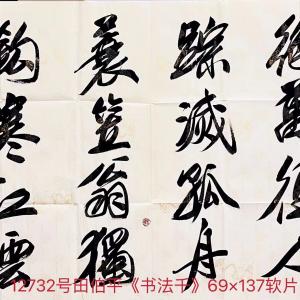 絕萬徑人
踪滅孤舟
蓑笠翁獨
釣寒江雪
12732号田伯平《书法千》69×137软片